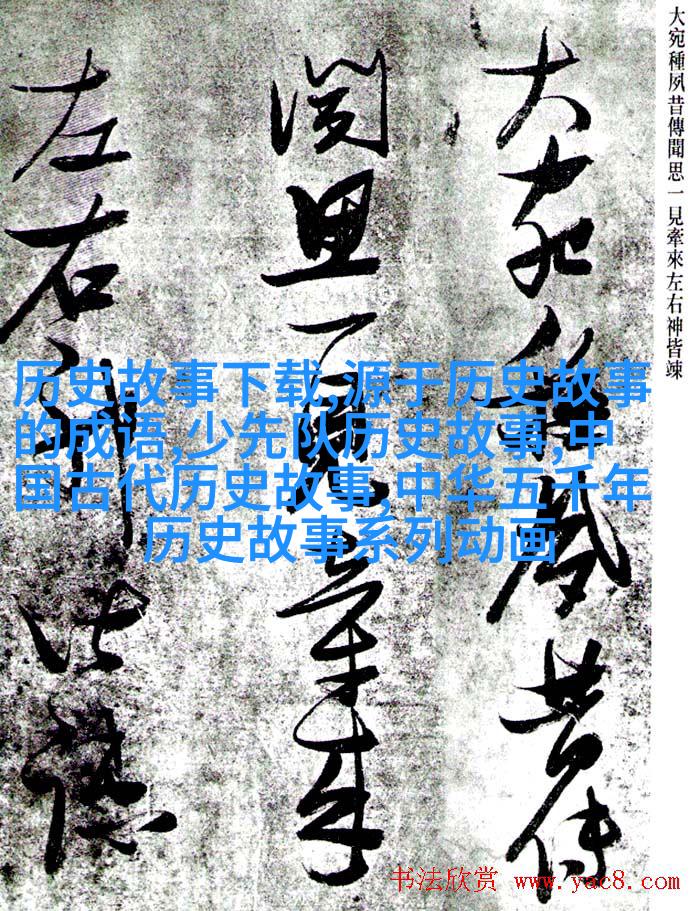 大宛種夙昔傳聞思一見牽來左右神皆竦
大宛種夙昔傳
聞思一見牽來
左右神皆竦
历史故事下载,源于历史故事
的成语,少先队历史故事,中
国古代历史故事,中华五千年
历史故事系列动画
书法欣赏 www.yac8.com